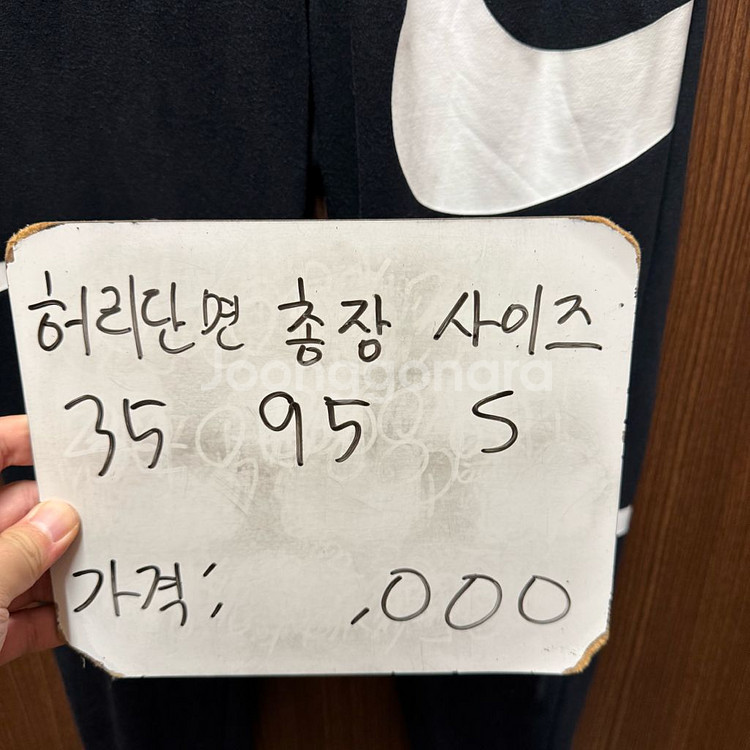 허리단면 총장 사이즈
Joonggonara
35 95 S
가격: ,000